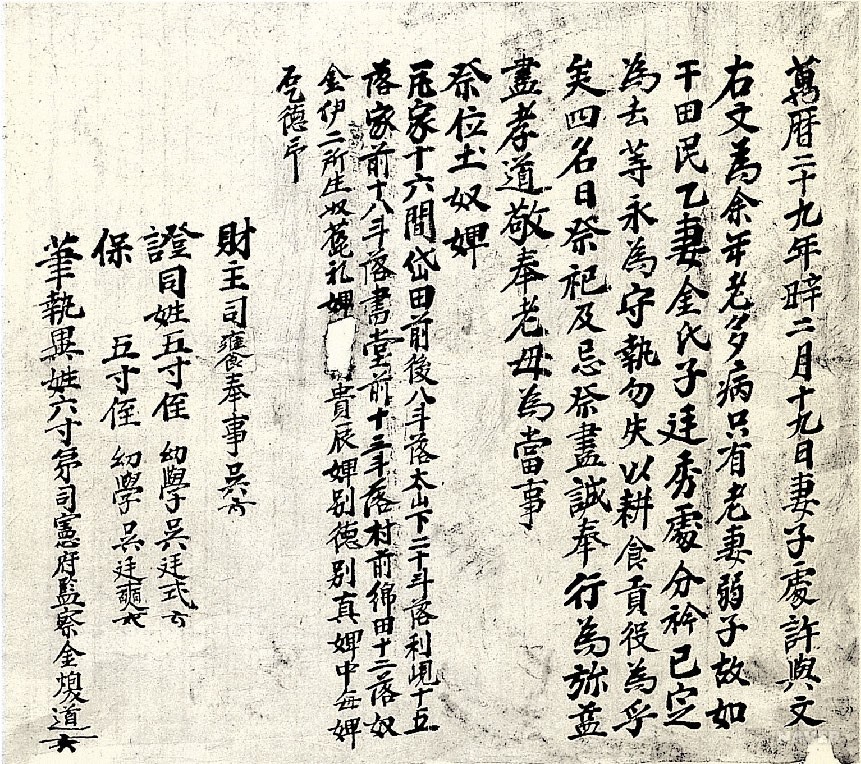 萬曆二十九年時二月十九日妻子處許與文
右文為余年老多病只有老妻弱子故如
干田民乙妻金氏子廷秀處分衿已定
為去等永為守執勿失以耕食貢役為乎
矣四名日祭祀及忌祭盡誠奉行為旀益
盡孝道敬奉老母為當事
祭位土奴婢
瓦家十六間岱田前後八斗落太山下二十斗落利峴十五
落家前十八斗落書堂前十三斗落村前綿田十二落奴
金伊二所生奴 礼婢 貴辰婢別德別真婢中每婢
德
財主司饔奉事吳
證同姓五寸侄 幼學吳廷式
保 五寸侄 幼學吳廷
筆執異姓六寸弟司憲府監察金煥道